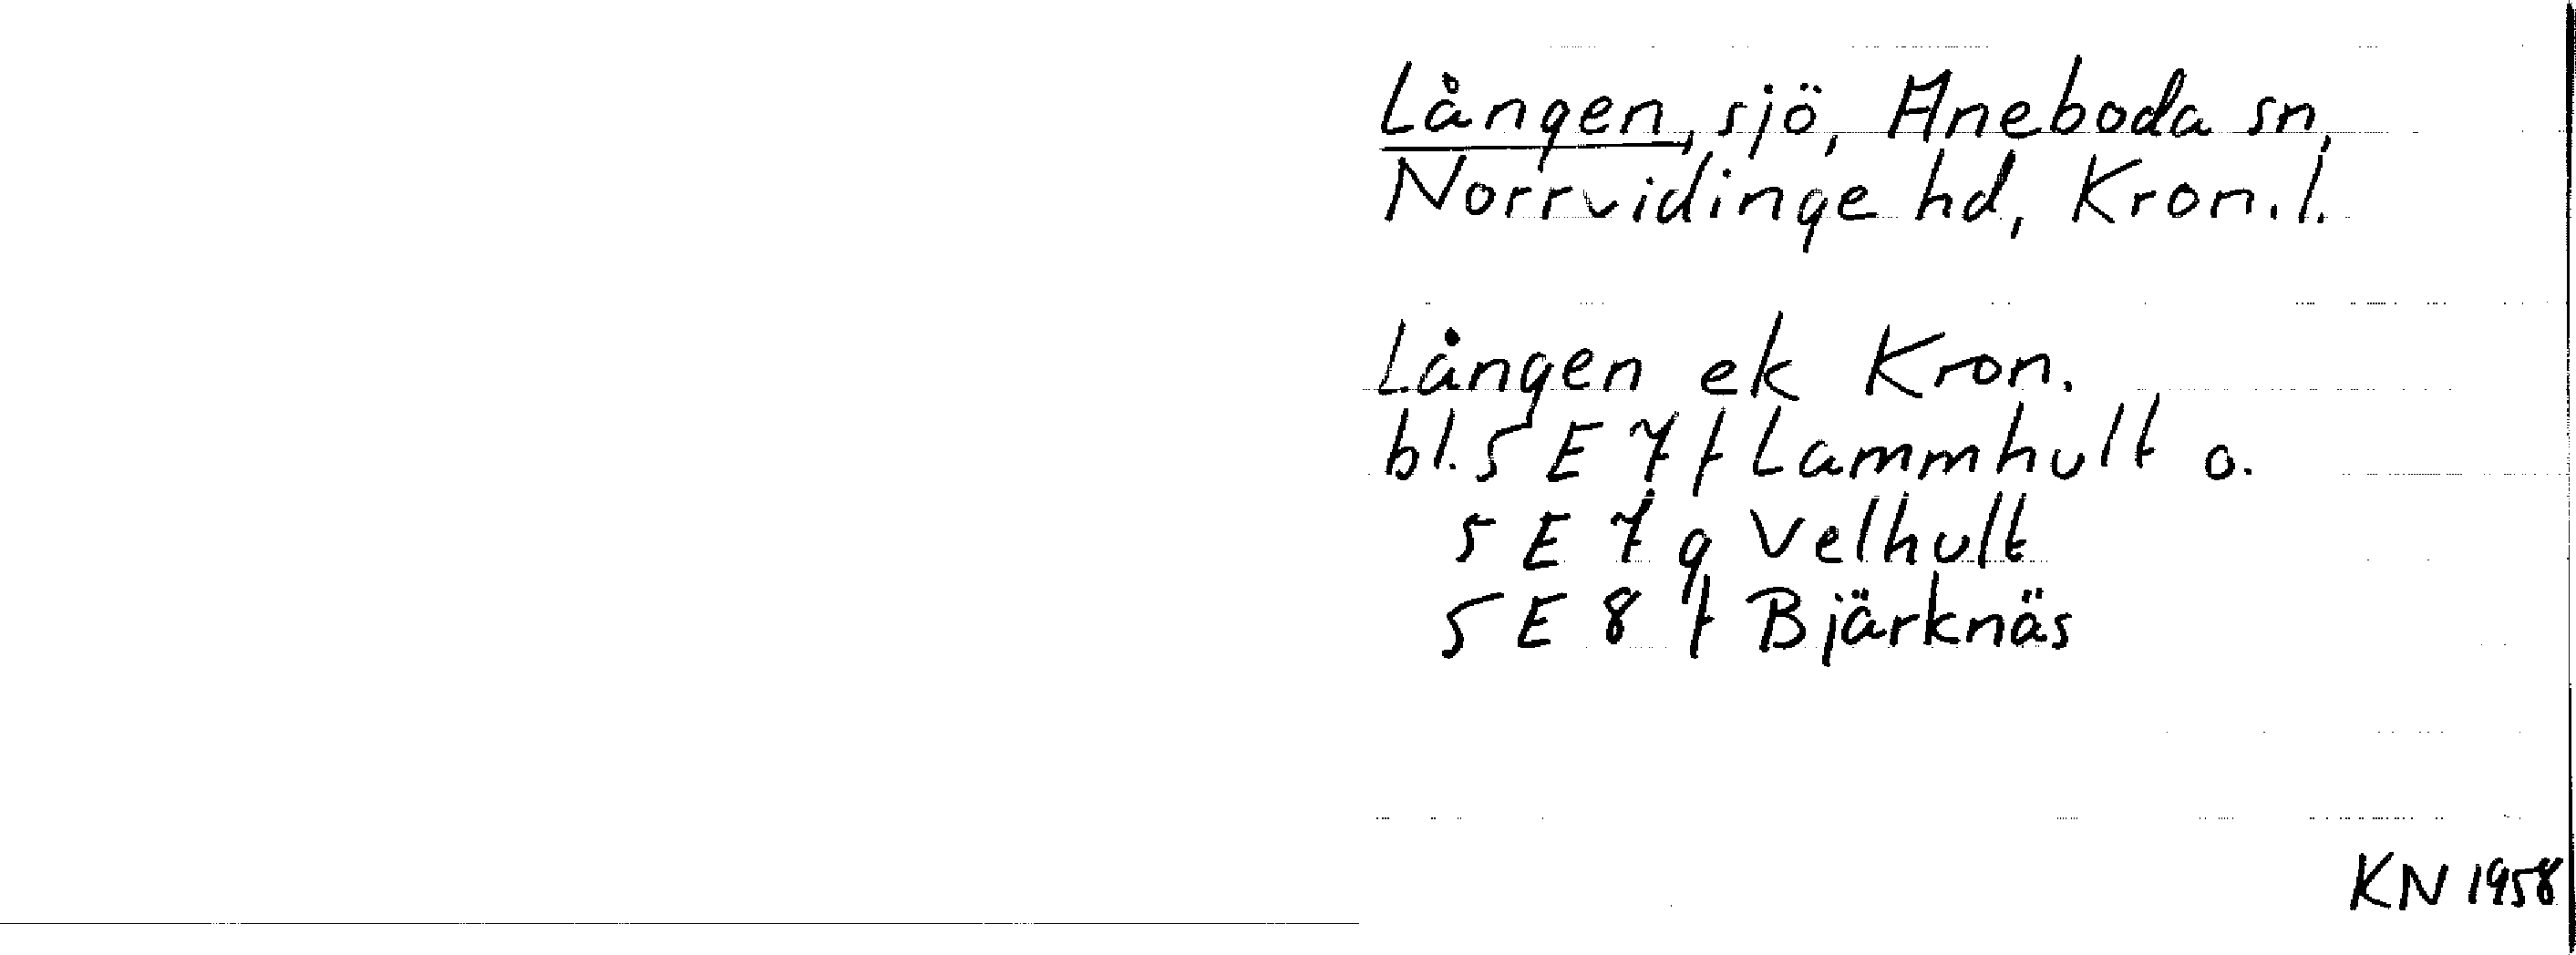 Lången, sjö, Aneboda sn,
Norrvidinge hd, Kron.l.
Lången ek Kron.
bl. 5 E 7 f Lammhult o.
5 E 7 g Velhult
5 E 8 f Bjärknäs
KN 1958